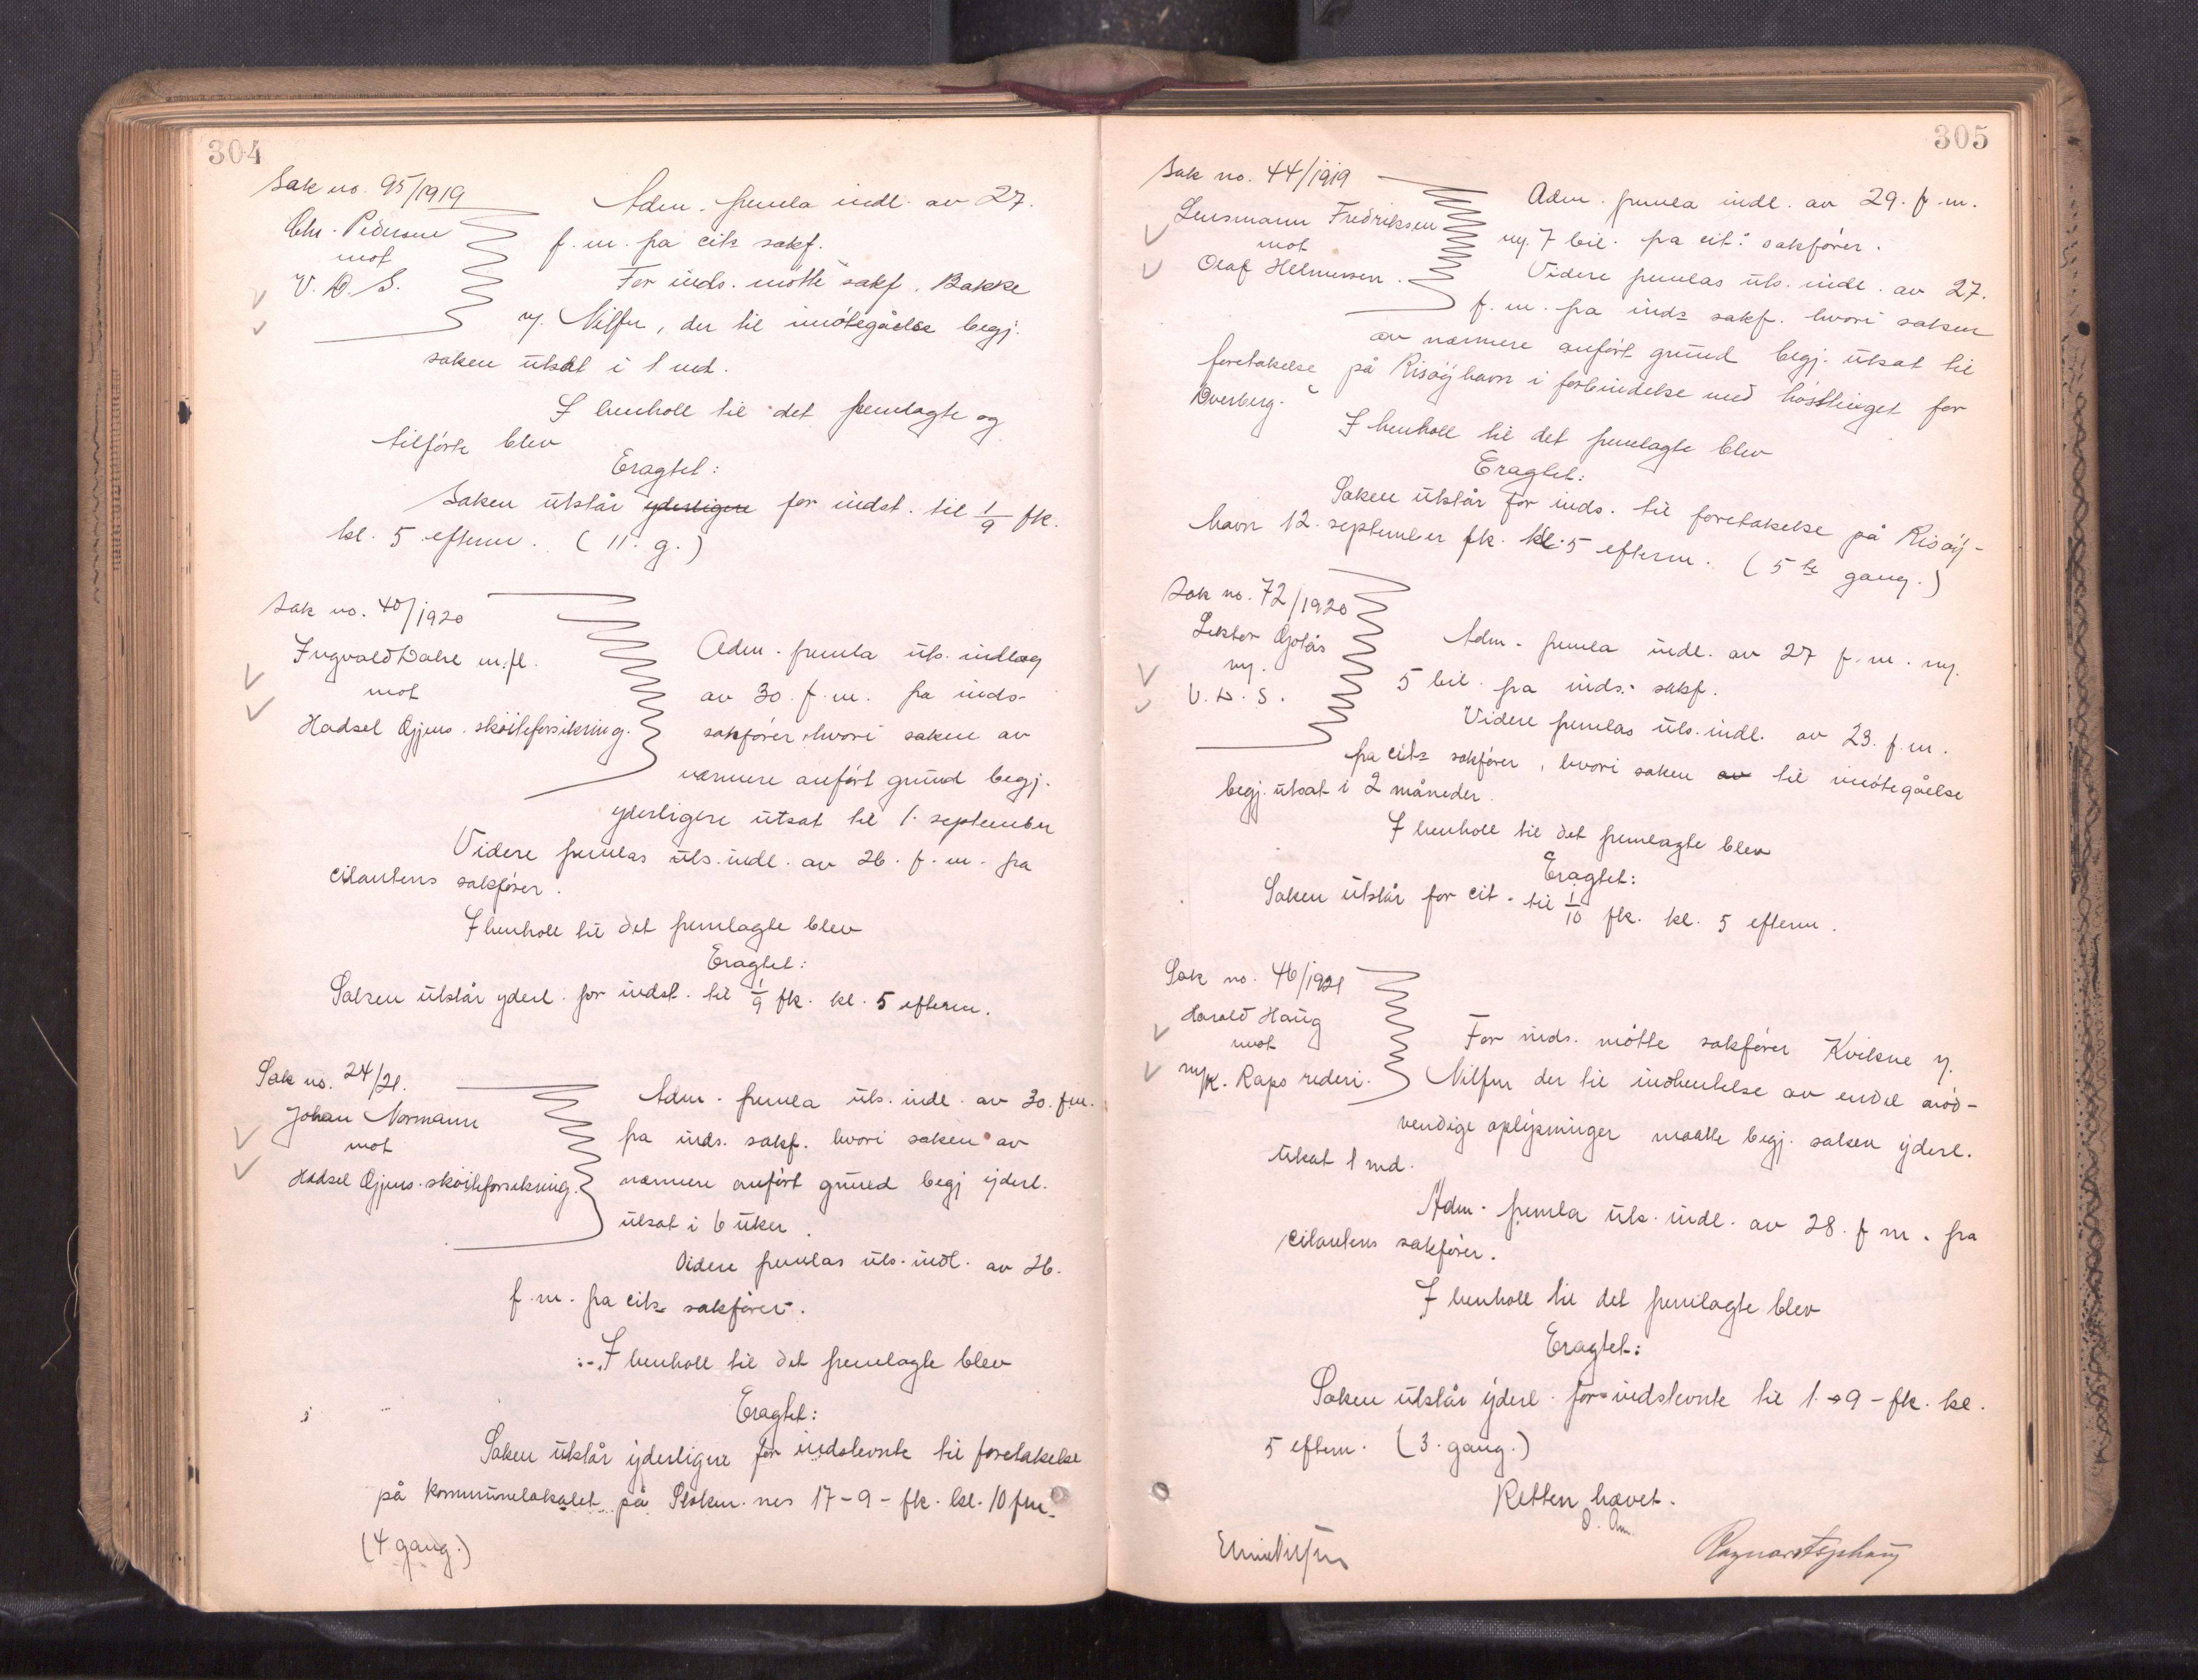 304
Sak no. 95/1919
Chr. Pedersen
mot
V. D. S.
Adm. fremla indl. av 27.
f. m. fra cits sakf.
For inds. møtte sakf. Bakke
v. Nilsen, der til imøtegåelse begj.
saken utsat i 1 md.
I henhold til det fremlagte og
tilførte blev
Eragtet:
Saken utstår yderligere for indst. til 1/9 fk.
kl. 5 efterm. (11. g.)
Sak no. 40/1920
Ingvald Dahl m.fl.
mot
Hadsel Gjens. skøiteforsikring.
Adm. fremla uts. indlæg
av 30. f. m. fra inds.
sakfører, hvori saken av
nærmere anført grund begj.
yderligere utsat til 1. september
Videre fremlas uts. indl. av 26. f. m. fra
citantens sakfører.
I henhold til det fremlagte blev
Eragtet:
Saken utstår yderl. for indst. til 1/9 fk. kl. 5 efterm.
Sak no. 24/21.
Johan Normann
mot
Hadsel Gjens. skøiteforsikring.
Adm. fremla uts. indl. av 30. f.m.
fra inds. sakf. hvori saken av
nærmere anført grund begj yderl.
utsat i 6 uker.
Videre fremlas uts. indl. av 26.
f. m. fra cits sakfører.
I henhold til det fremlagte blev
Eragtet:
Saken utstår yderligere for indstevnte til foretakelse
på kommunelokalet på Stokmarknes 17-9- fk. kl. 10 fm.
(4 gang.)
305
Sak no. 44/1919
Lensmann Fredriksen
mot
Olaf Helmersen.
Adm. fremla indl. av 29. f. m.
m. 7 bil. fra cit: sakfører.
Videre fremlas uts. indl. av 27.
f. m. fra inds sakf. hvori saken
av nærmere anført grund begj. utsat til
foretakelse på Risøyhavn i forbindelse med høsttinget for
Dverberg.
I henhold til det fremlagte blev
Eragtet:
Saken utstår for inds. til foretakelse på Risøy-
havn 12. september fk. kl. 5 efterm. (5te gang.)
Sak no. 72/1920
Lektor Gjølås
m.
V. D. S.
Adm. fremla indl. av 27 f. m. m.
5 bil. fra inds. sakf.
Videre fremlas uts. indl. av 23. f. m.
fra cits sakfører, hvori saken av til imøtegåelse
begj. utsat i 2 måneder.
I henhold til det fremlagte blev
Eragtet:
Saken utstår for cit. til 1/10 fk. kl. 5 efterm.
Sak no. 46/1921
Harald Haug
mot
m/k. Raps rederi.
For inds. møtte sakfører Kvikne v.
Nilsen der til indhentelse av endel nød-
vendige oplysninger maatte begj. saken yderl.
utsat 1 md.
Adm. fremla uts. indl. av 28. f m. fra
citantens sakfører.
I henhold til det fremlagte blev
Eragtet:
Saken utstår yderl. for indstevnte til 1.-9- fk. kl.
5 efterm. (3. gang.)
Retten hævet.